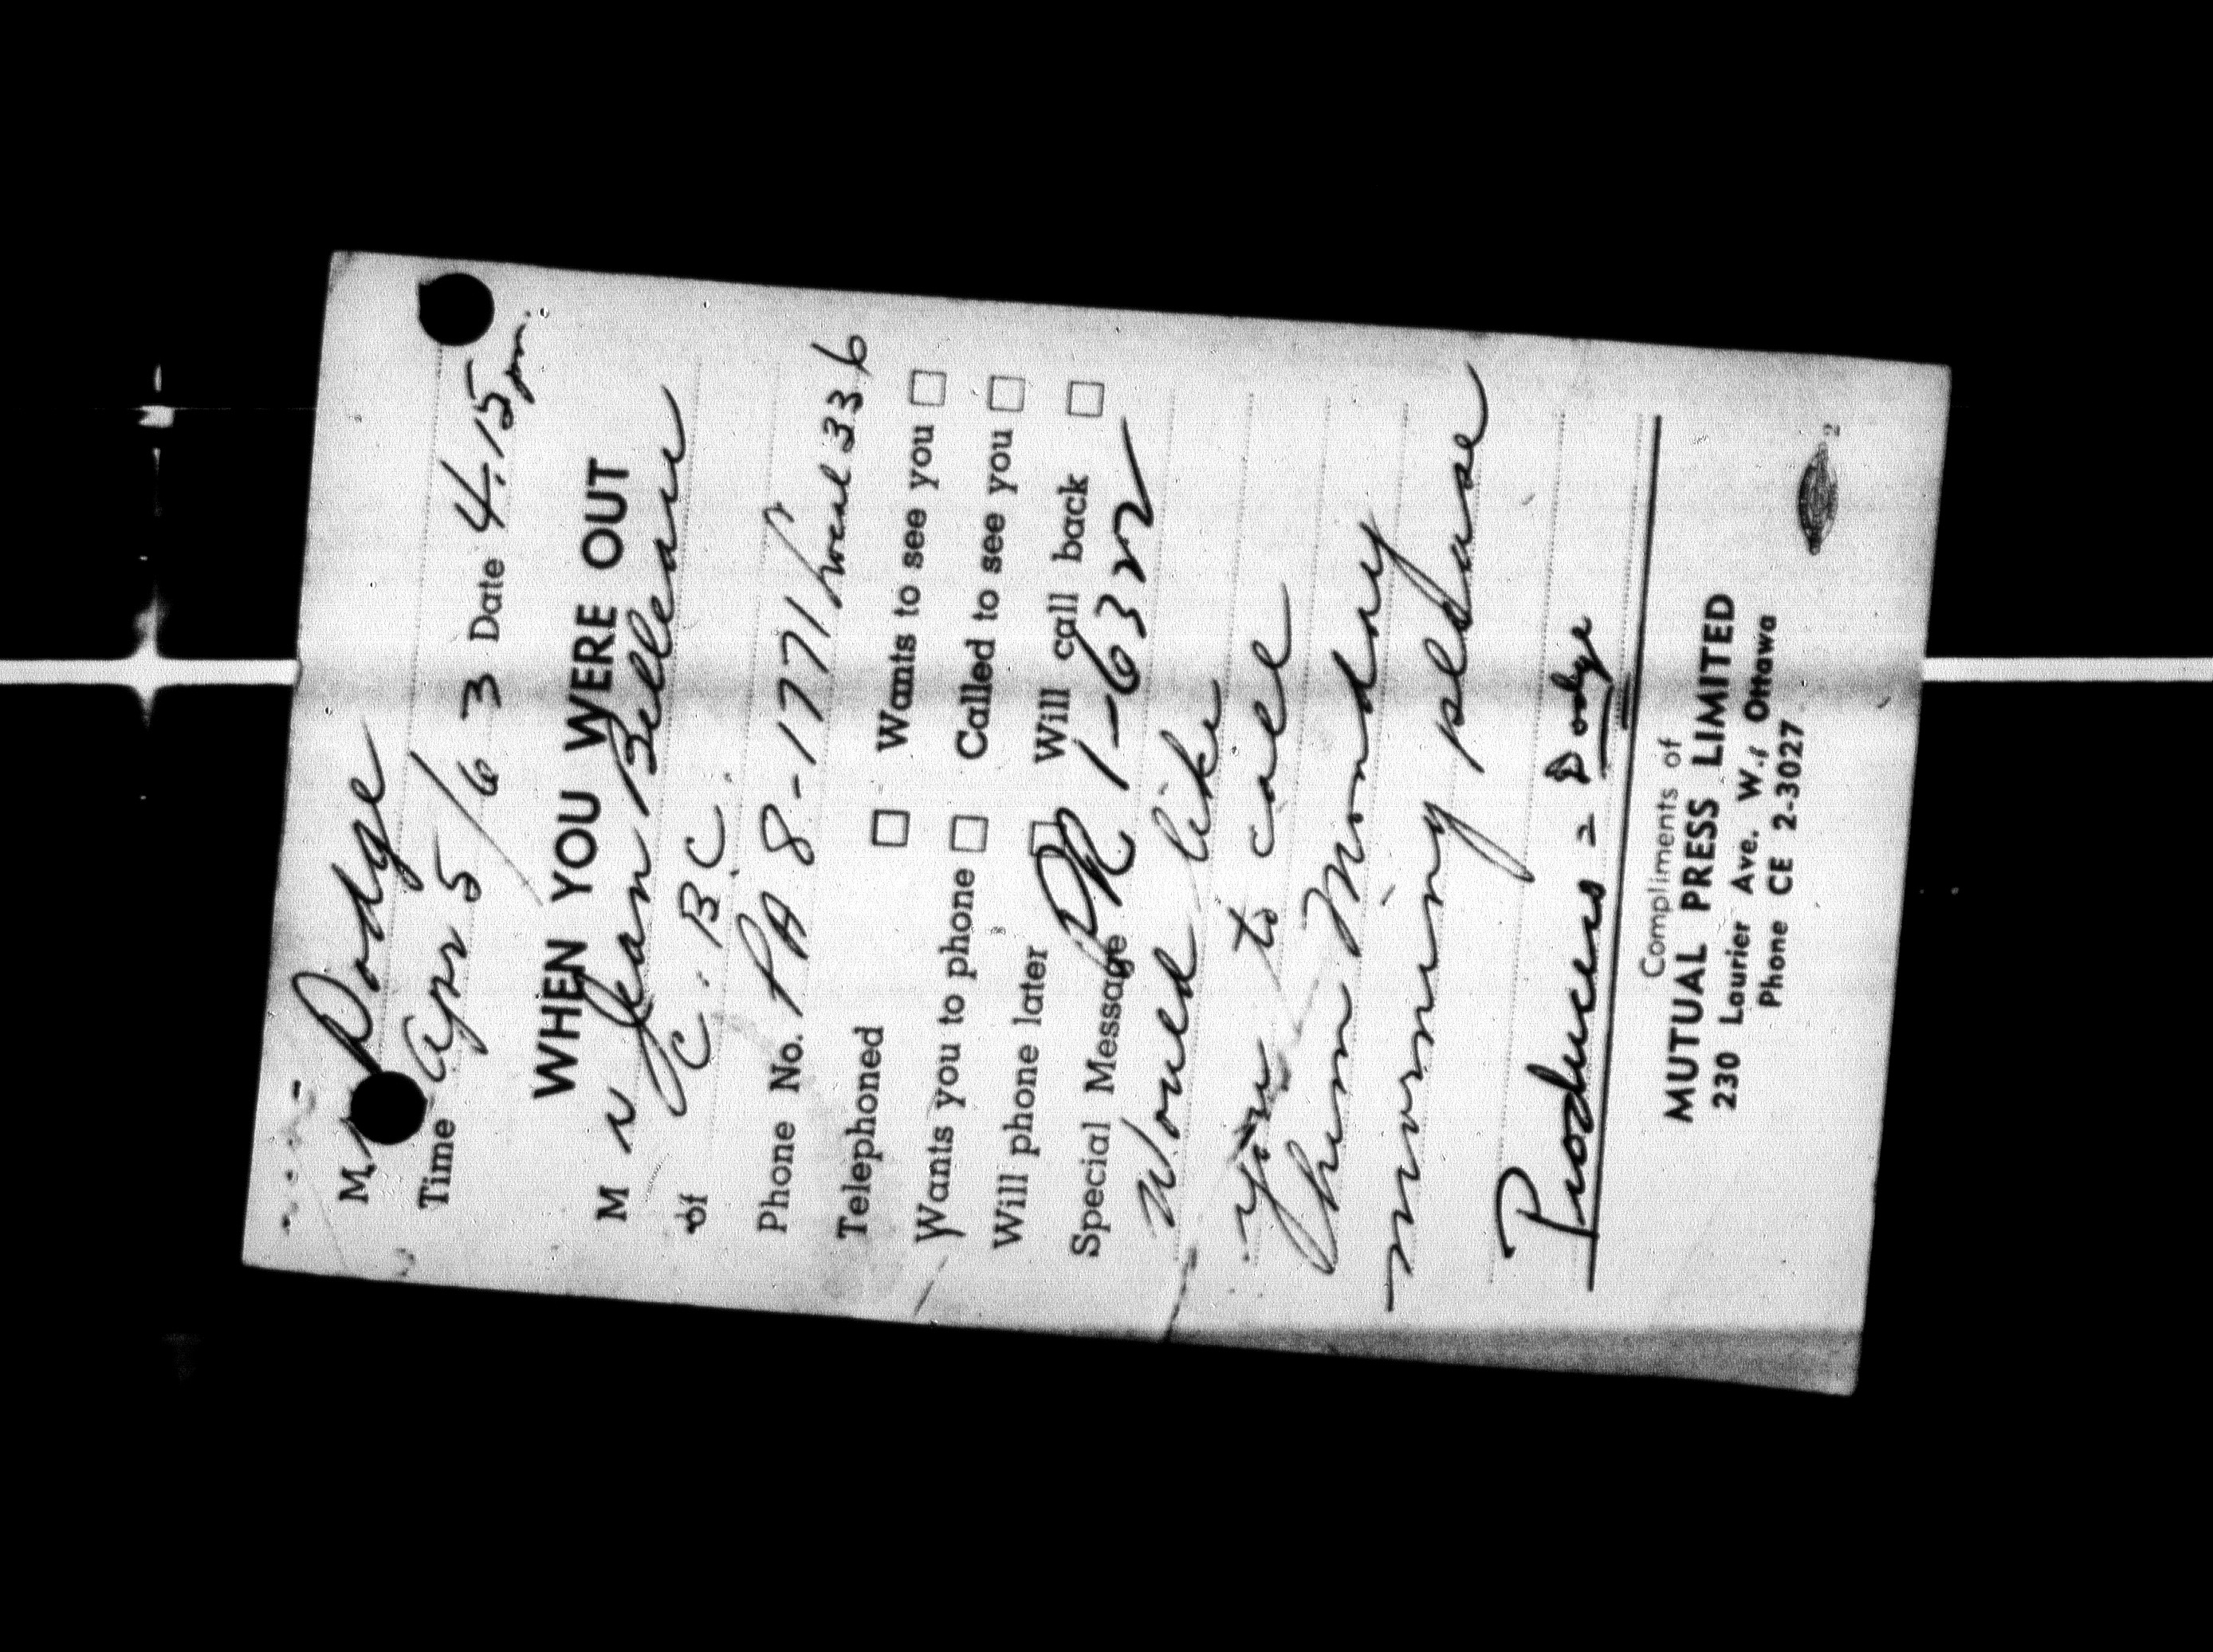 Mr Dodge
Time Apr 5/63 Date 4.15 pm.
WHEN YOU WERE OUT
Mr Jean Belleau
of C.B.C.
Phone No. PA 8-1771 Local 336
Telephoned ☐ Wants to see you ☐
Wants you to phone ☐ Called to see you ☐
Will phone later ☐ Will call back ☐
Special Message PR 1-6322
Woued like
you to call
him Monday
morning please
Producers = Dodge
Compliments of
MUTUAL PRESS LIMITED
230 Laurier Ave. W., Ottawa
Phone CE 2-3027
2